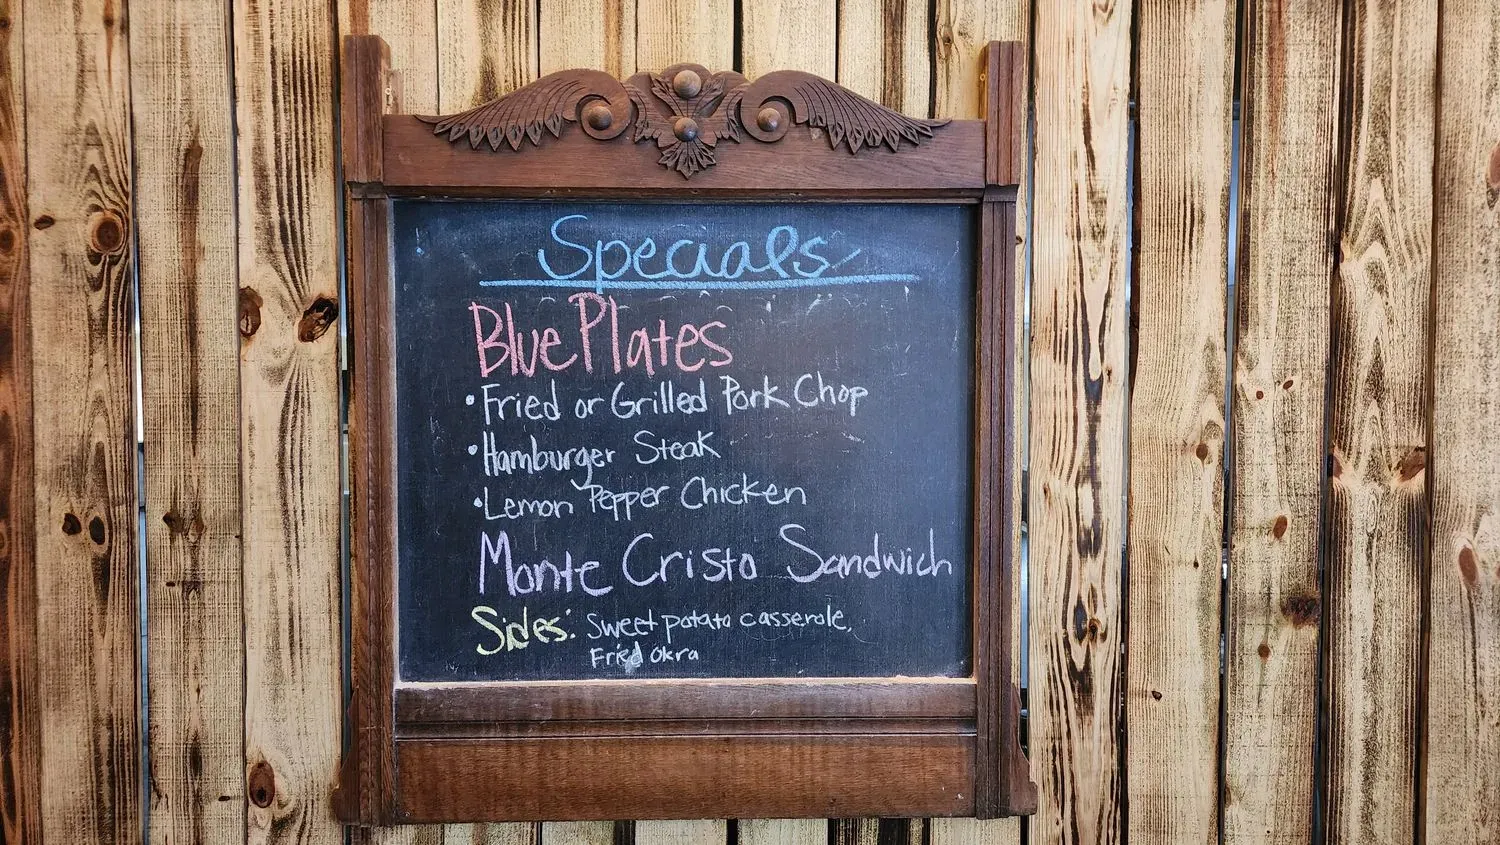 Specials
Blue Plates
• Fried or Grilled Pork Chop
• Hamburger Steak
• Lemon Pepper Chicken
Monte Cristo Sandwich
Sides: Sweet potato casserole,
Fried Okra